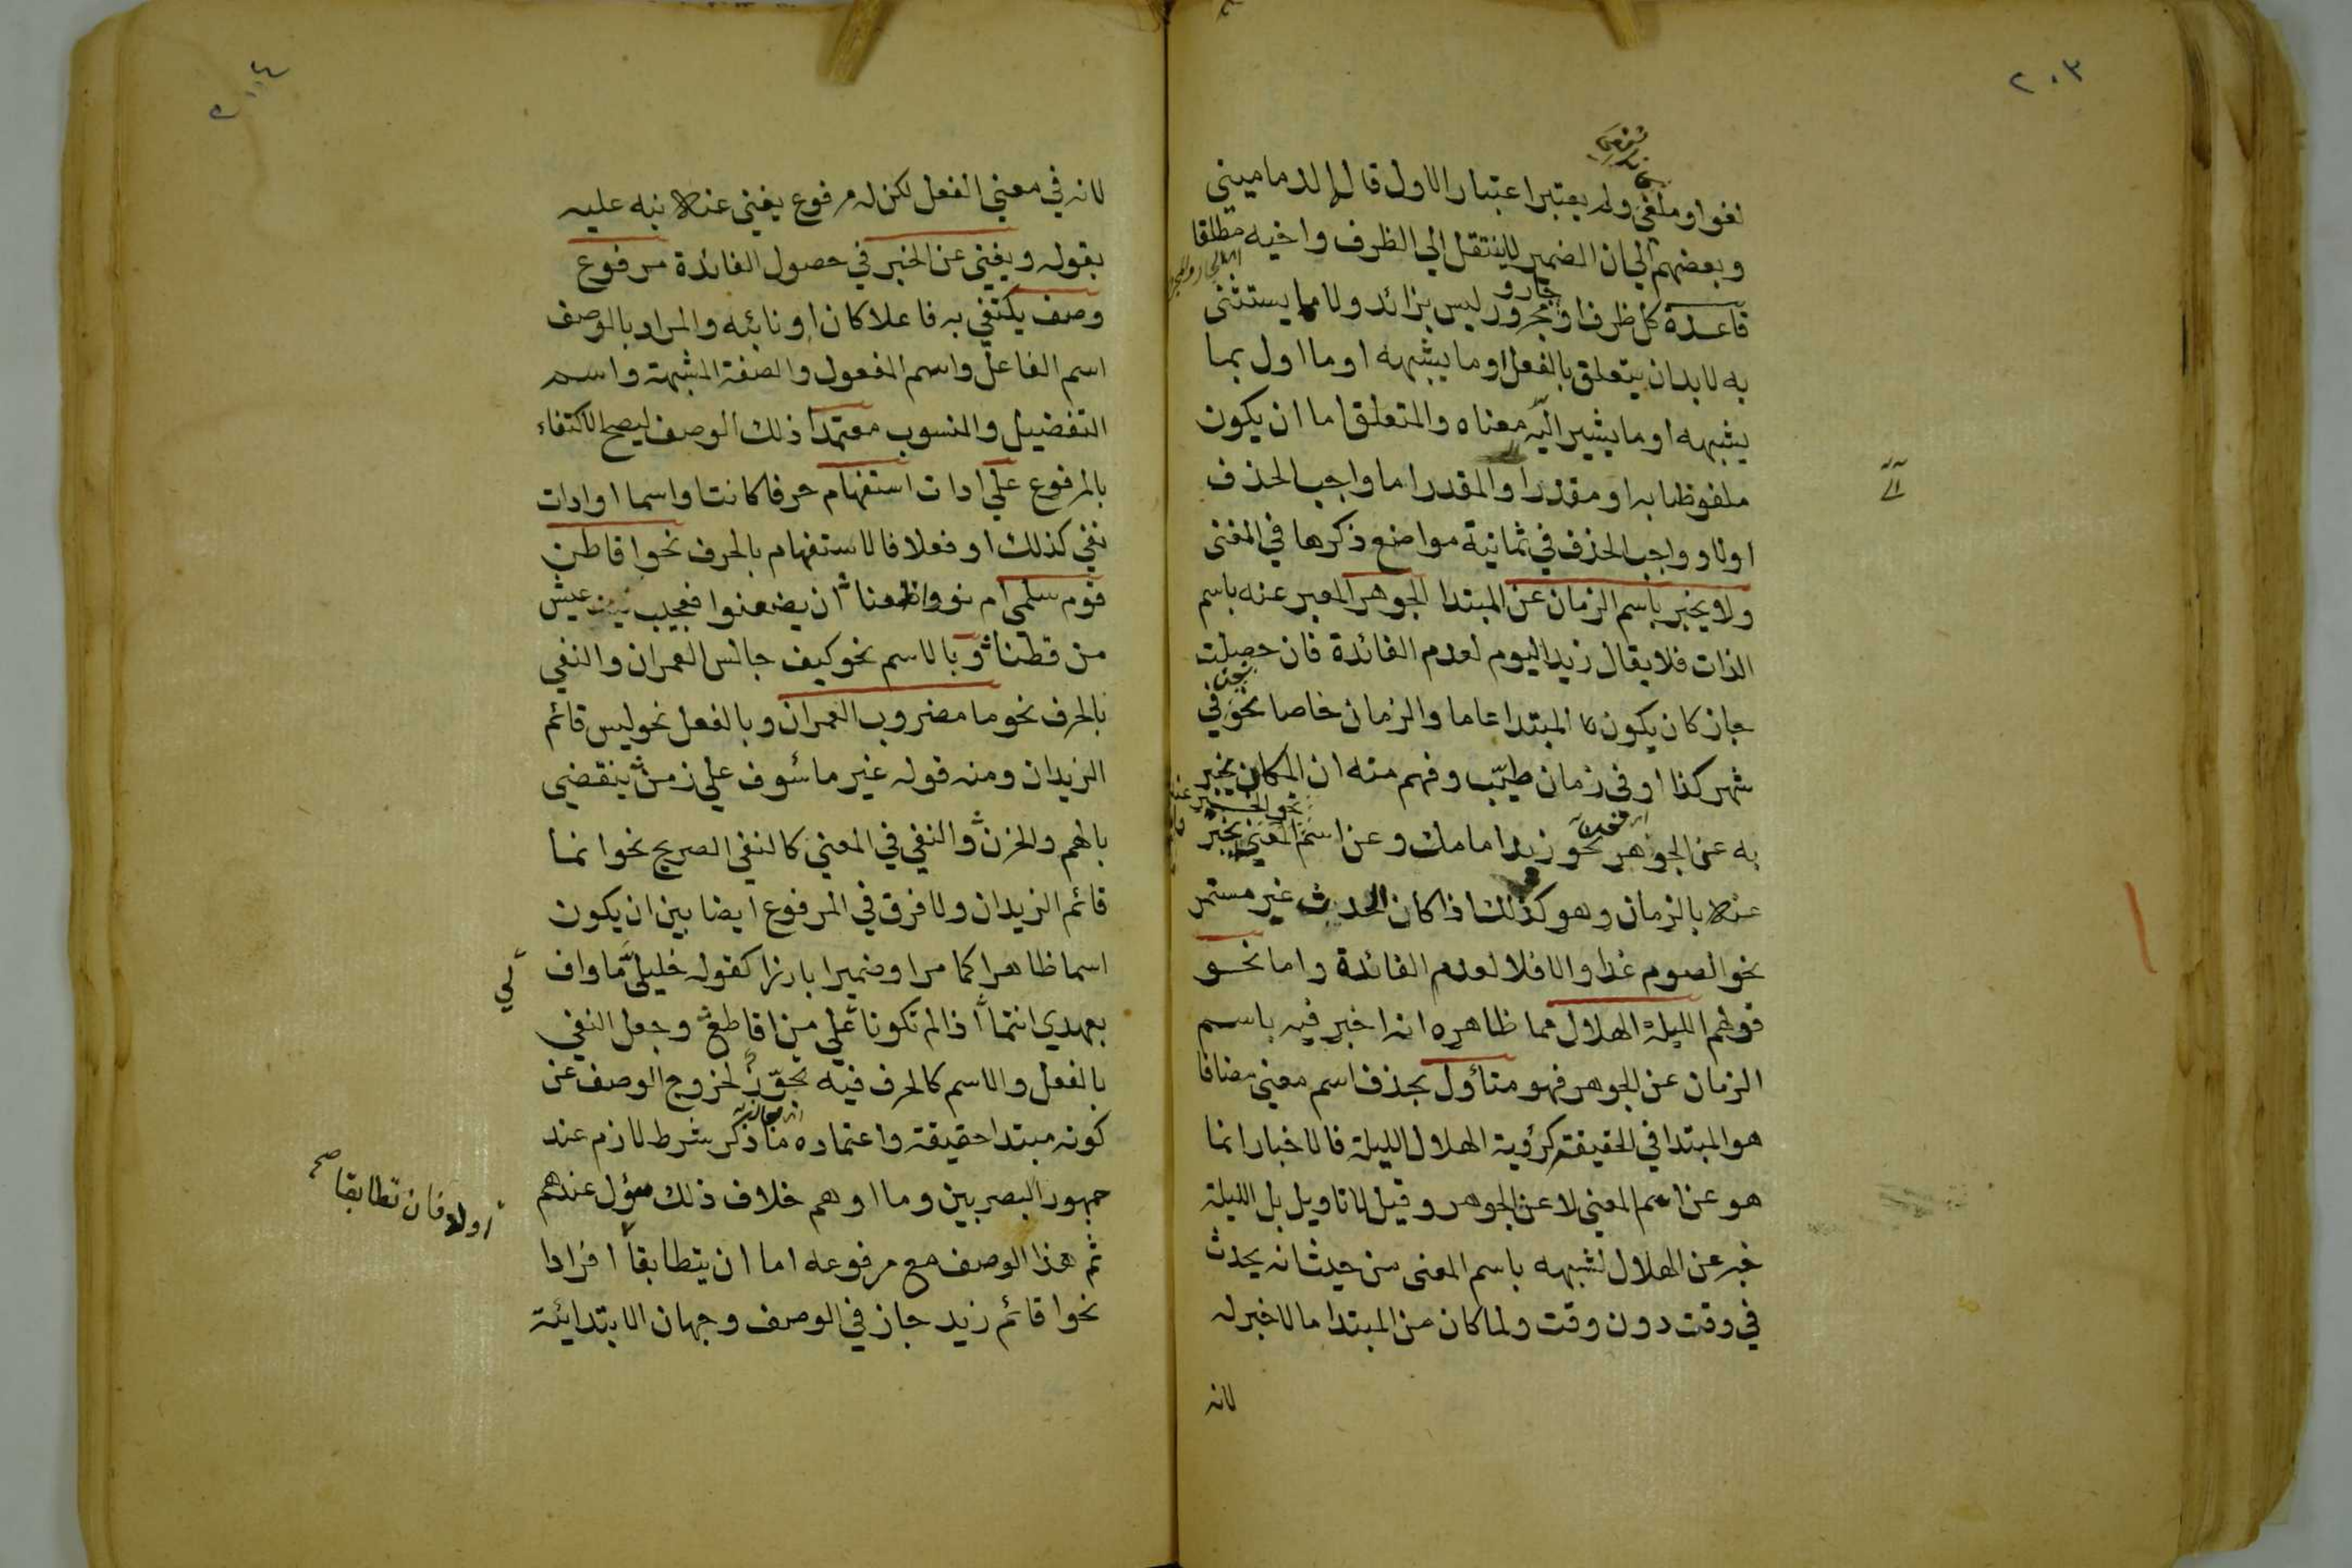 ٢٠٣
لغوا وملغى ولم يعتبر اعتبار الاول قال الدماميني
وبعضهم الى ان الضمير لا ينتقل الي الظرف واخيه مطلقا
قاعدة كل ظرف او جار ومجرور ليس بزائد ولا مما يستثنى
به لا بد ان يتعلق بالفعل او ما يشبهه او ما اول بما
يشبهه او ما يشير الي معناه والمتعلق اما ان يكون
ملفوظا به او مقدرا والمقدر اما واجب الحذف
اولا وواجب الحذف في ثمانية مواضع ذكرها في المغنى
ولا يخبر باسم الزمان عن المبتدا الجوهر المعبر عنه باسم
الذات فلا يقال زيد اليوم لعدم الفائدة فان حصلت
جاز كان يكون المبتدا عاما والزمان خاصا نحو نحن في
شهر كذا او في زمان طيّب وفهم منه ان المكان يخبر
به عن الجوهر نحو زيد امامك وعن اسم المعنى يخبر
عنه بالزمان وهو كذلك اذا كان الحدث غير مستمر
نحو الصوم غدا والا فلا لعدم الفائدة واما نحو
قولهم الليلة الهلال مما ظاهره انه اخبر فيه باسم
الزمان عن الجوهر فهو متأول بحذف اسم معنى مضافا
هو المبتدا في الحقيقة كرؤية الهلال الليلة فالاخبار انما
هو عن اسم المعنى لا عن الجوهر وقيل لا تاويل بل الليلة
خبر عن الهلال لشبهه باسم المعنى من حيث انه يحدث
في وقت دون وقت ولما كان من المبتدا ما لا خبر له
لانه
٢٠٤
لانه في معني الفعل لكن له مرفوع يغني عنه نبه عليه
بقوله ويغني عن الخبر في حصول الفائدة مرفوع
وصف يكتفي به فاعلا كان او نائبه والمراد بالوصف
اسم الفاعل واسم المفعول والصفة المشبهة واسم
التفضيل والمنسوب معتمدا ذلك الوصف ليصح الاكتفاء
بالمرفوع علي ادات استفهام حرفا كانت او اسما او ادات
نفي كذلك او فعلا فالاستفهام بالحرف نحو اقاطن
قوم سلمي ام نووا ظعنا ان يضعنوا فعجيب عيش
من قطنا وبالاسم نحو كيف جالس العمران والنفي
بالحرف نحو ما مضروب العمران وبالفعل نحو ليس قائم
الزيدان ومنه قوله غير مأسوف علي زمن ينقضي
بالهم والحزن والنفي في المعني كالنفي الصريح نحو انما
قائم الزيدان ولا فرق في المرفوع ايضا بين ان يكون
اسما ظاهرا كما مر او ضميرا بارزا كقوله خليليّ ما واف
بعهدي انتما اذا لم تكونا لي علي من اقاطع وجعل النفي
بالفعل والاسم كالحرف فيه تجوّز لخروج الوصف عن
كونه مبتدا حقيقة واعتماده ما ذكر شرط لازم عند
جمهور البصريين وما اوهم خلاف ذلك مؤل عندهم
اولا فان تطابقا صح
ثم هذا الوصف مع مرفوعه اما ان يتطابقا افرادا
نحو اقائم زيد جاز في الوصف وجهان الابتدائة